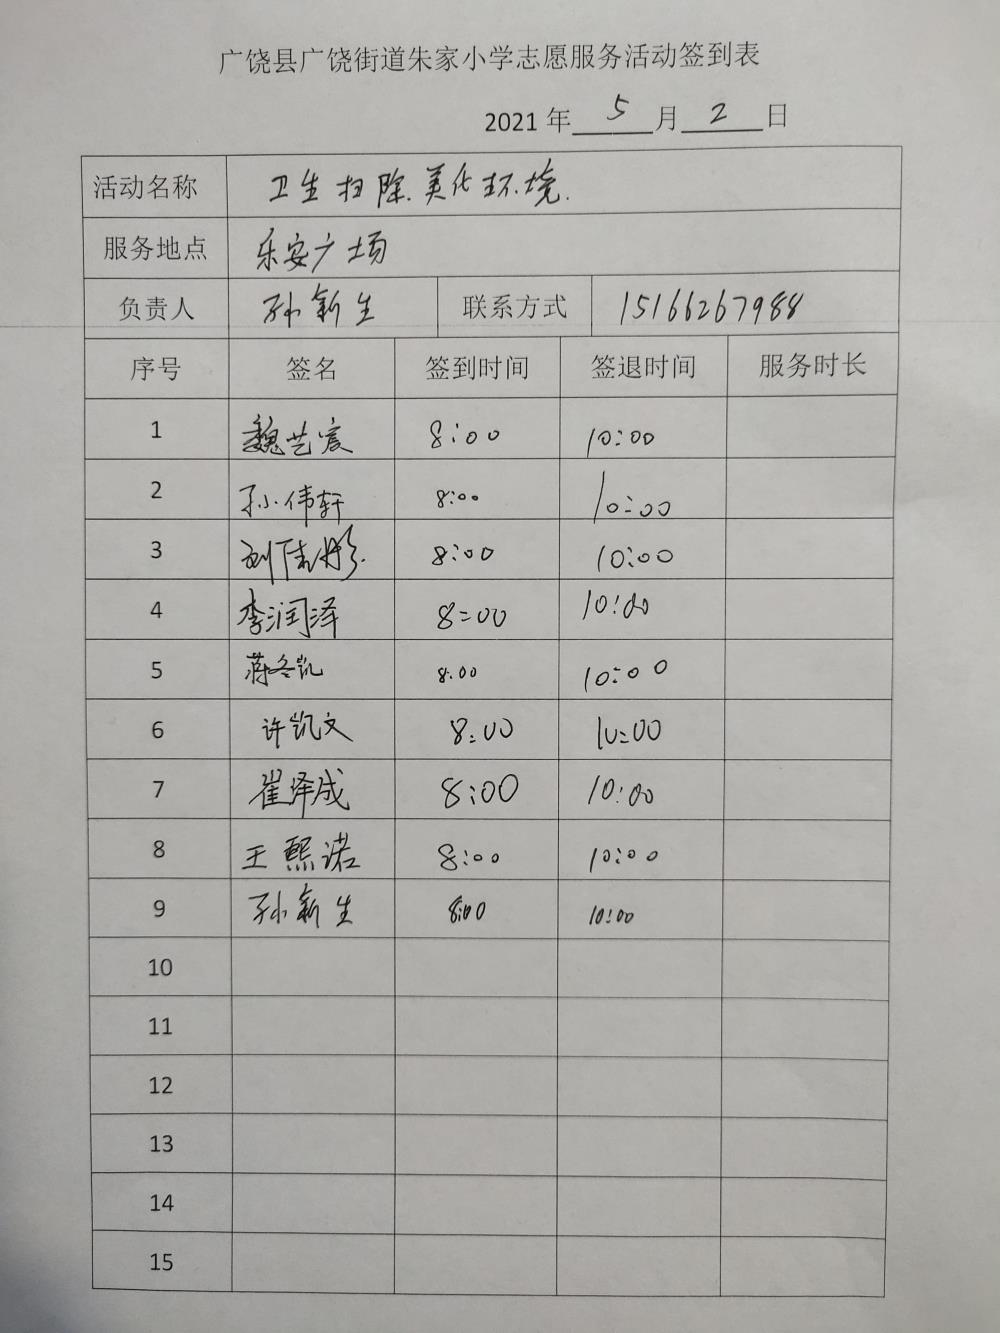 广饶县广饶街道朱家小学志愿服务活动签到表
2021 年 5 月 2 日
活动名称 卫生扫除.美化环境.
服务地点 乐安广场
负责人 孙新生 联系方式 15166267988
序号 签名 签到时间 签退时间 服务时长
1 魏艺宸 8:00 10:00
2 孙伟轩 8:00 10:00
3 刘佳彤 8:00 10:00
4 李润泽 8:00 10:00
5 蒋冬凯 8:00 10:00
6 许凯文 8:00 10:00
7 崔泽成 8:00 10:00
8 王熙诺 8:00 10:00
9 孙新生 8:00 10:00
10
11
12
13
14
15